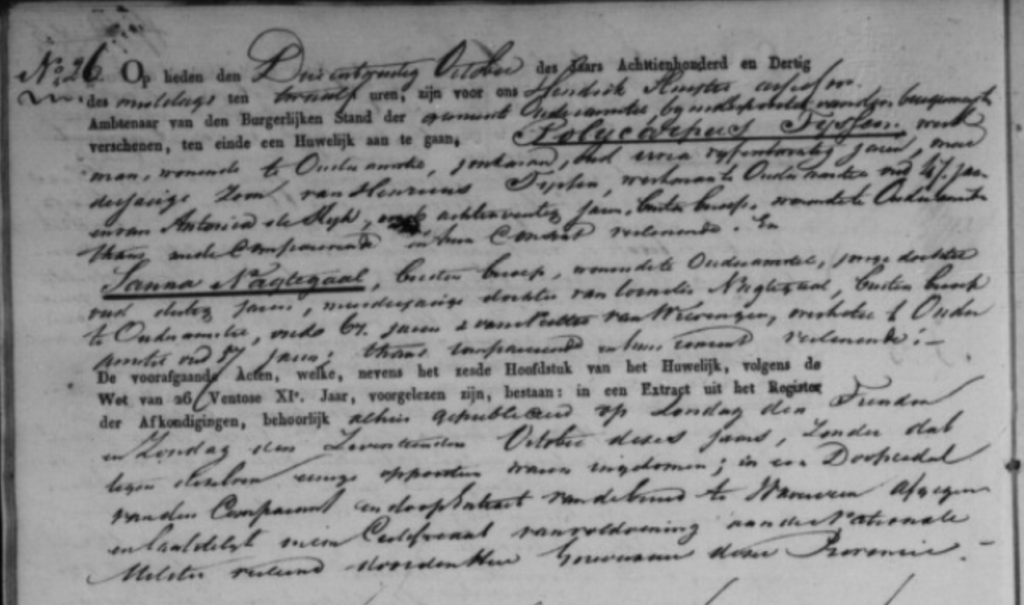 No. 26. Op heden den Drie en twintig October des Jaars Achttienhonderd en Dertig
des middags ten twaalf uren, zijn voor ons Hendrik assessor
Ambtenaar van den Burgerlijken Stand der gemeente Ouderamstel
verschenen, ten einde een Huwelijk aan te gaan, Polycarpus Tyssen, werk
man, wonende te Ouderamstel, jonkman, oud vyfentwintig jaren, meer
derjarige Zoon van Henricus Tyssen, werkman te Ouderamstel oud 47 ja-
en van Antonia de Ryk, oud achtenveertig jaren, buiten beroep, wonende te Ouderamstel
thans mede Comparerende en hun Consent verleenende. En
Sanna Nagtegaal, buiten beroep, wonende te Ouderamstel, jonge dochter
oud dertig jaren, meerderjarige dochter van Cornelis Nagtegaal, buiten beroep
te Ouderamstel, oud 67 jaren & van van Wieringen, te Ouder
amstel oud 57 jaren; thans comparerende en hun consent verleenende:—
De voorafgaande Acten, welke, nevens het zesde Hoofdstuk van het Huwelijk, volgens de
Wet van 26 Ventose XIe. Jaar, voorgelezen zijn, bestaan: in een Extract uit het Register
der Afkondigingen, behoorlijk alhier gepubliceerd op Zondag den Tienden
en Zondag den Zeventienden October dezes jaars, zonder dat
tegen dezelven eenige oppositien waren ingekomen; in een Doopcedul
van den Comparant en doop Extract van de bruid te Waveren afgegeven
en laatstelyk een Certificaat van voldoening aan de Nationale
Militie verleend door den Heer Gouverneur dezer Provincie.—